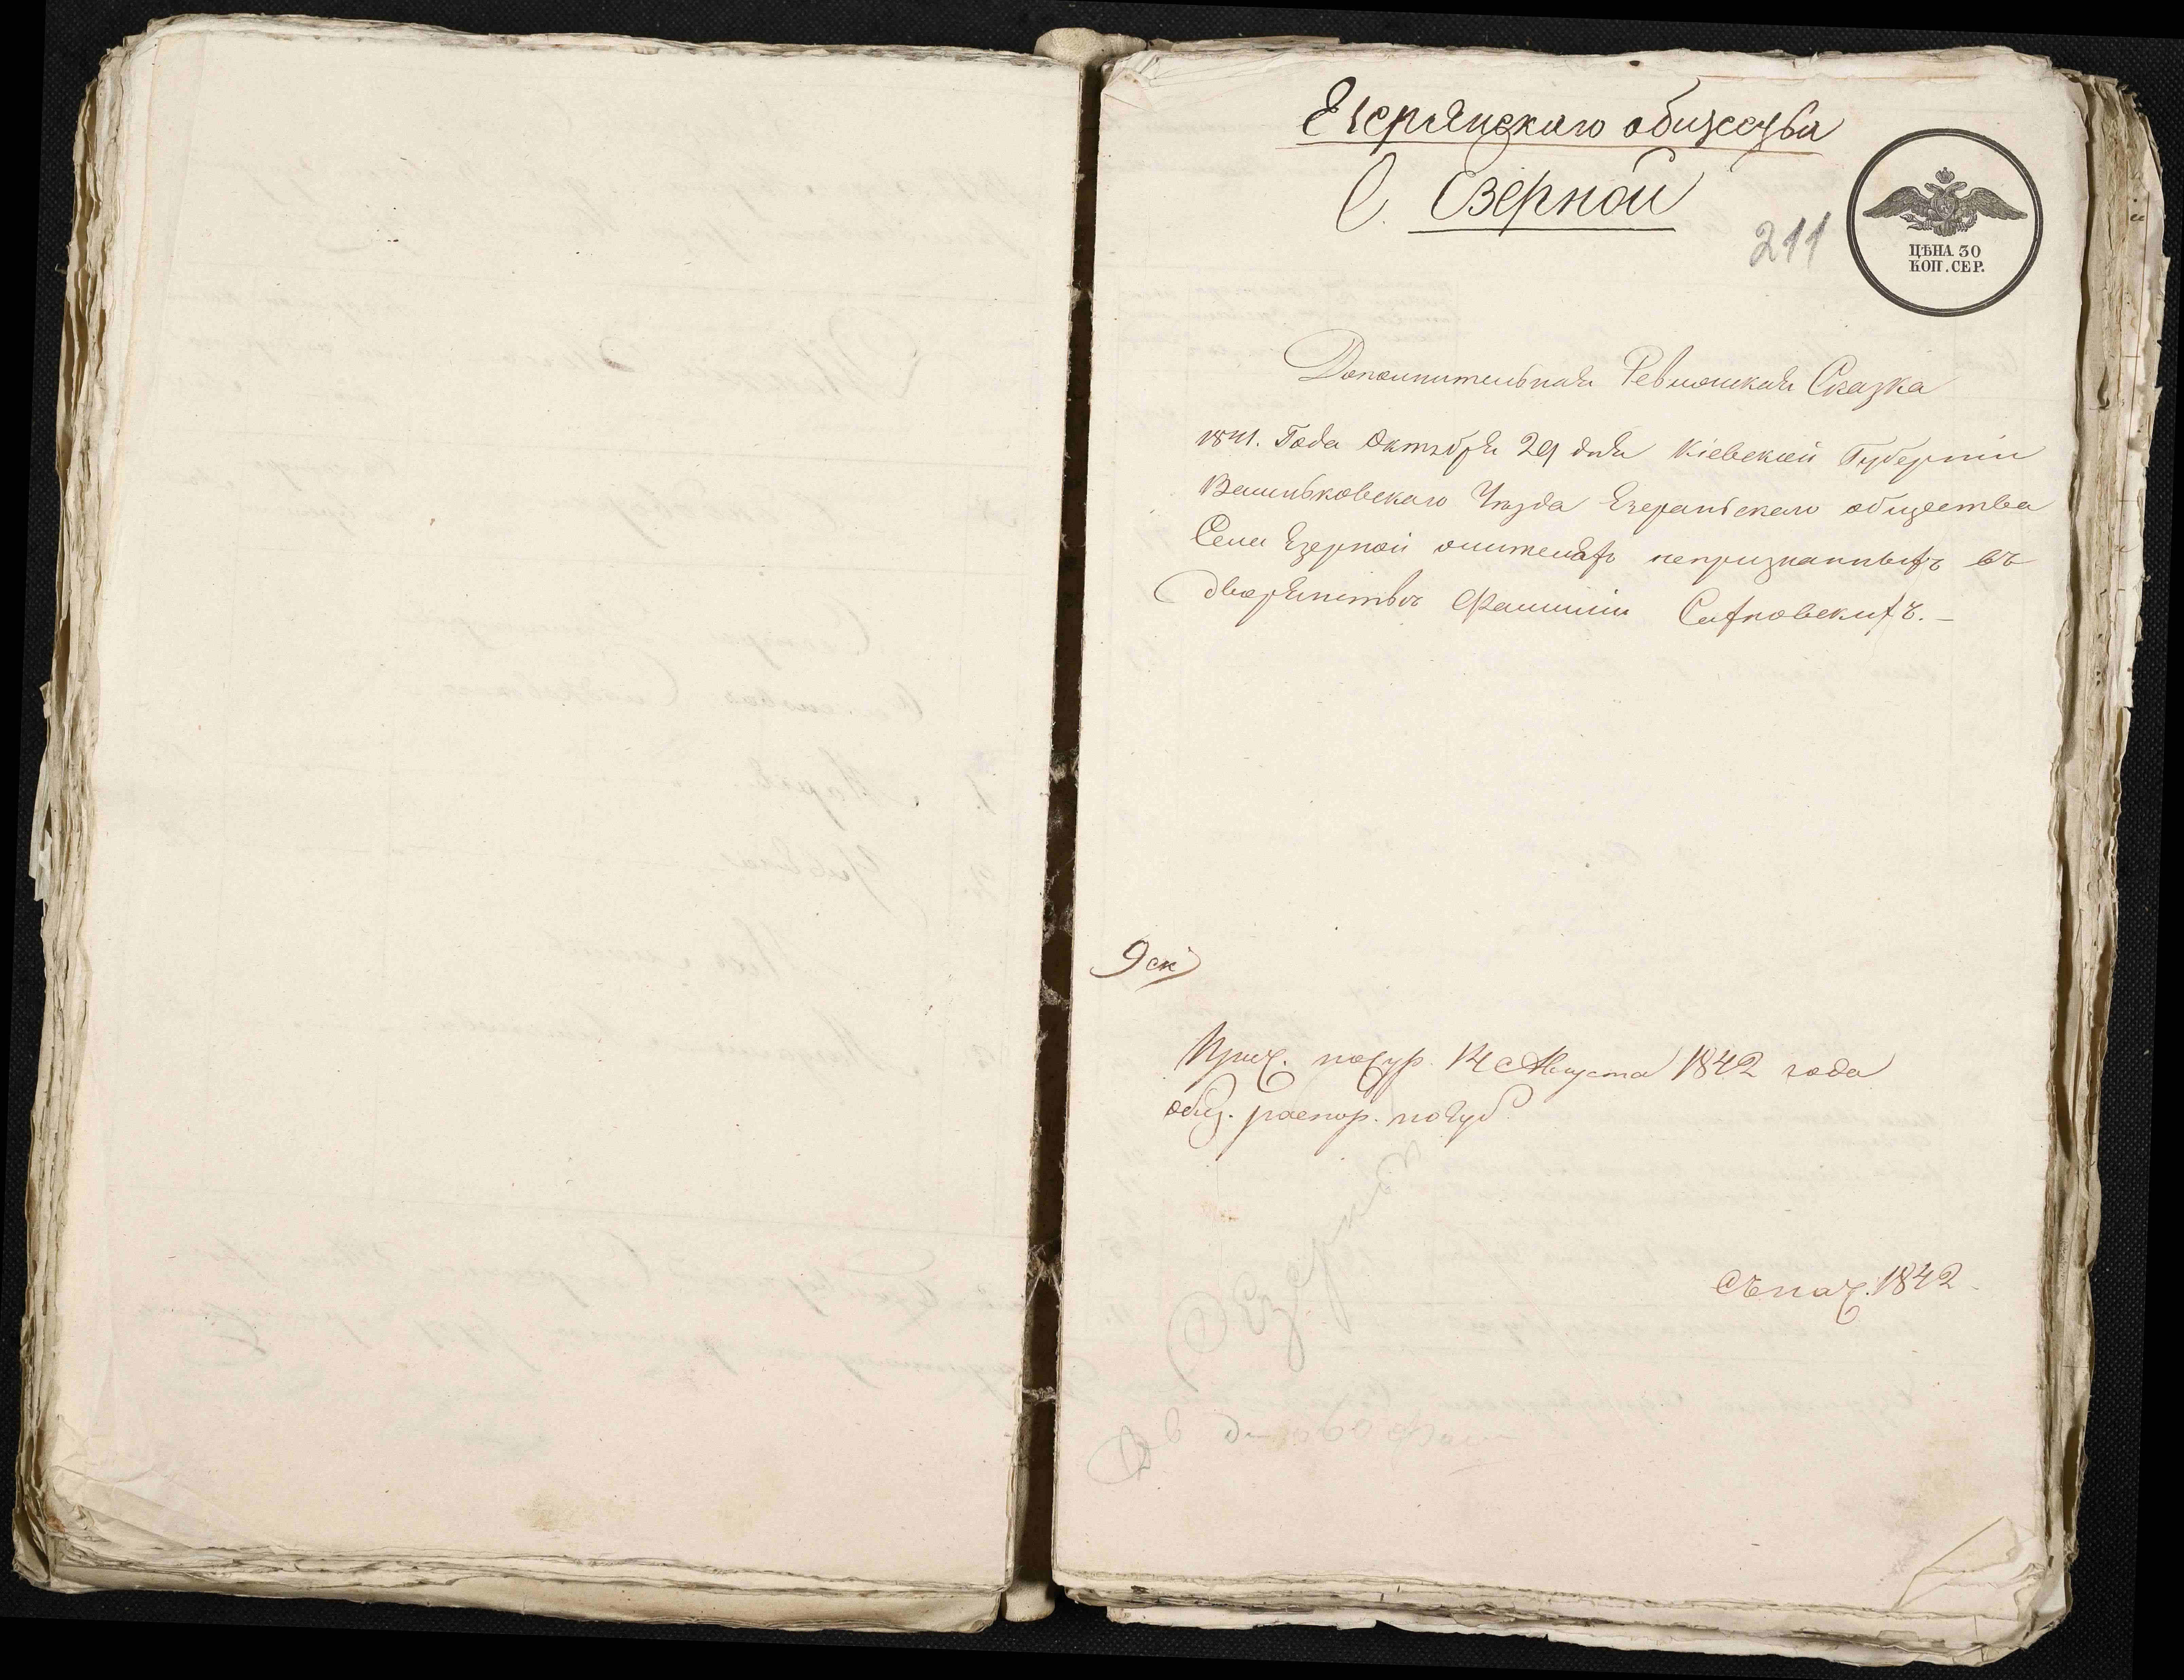 Езерянскаго общества
С. Езерной
211
ЦѢНА 30
КОП. СЕР.
Дополнительная Ревизская Сказка
1841. Года Октября 29 дня Кіевской Губерніи
Васильковскаго Уѣзда Езеранскаго общества
Села Езерной о непризнанныхъ въ
дворянствѣ Фамиліи Сахновскихъ.–
9 ск
Прич. по 14 Августа 1842 года
общ. распор. по губ
Езерной
съ пол. 1842